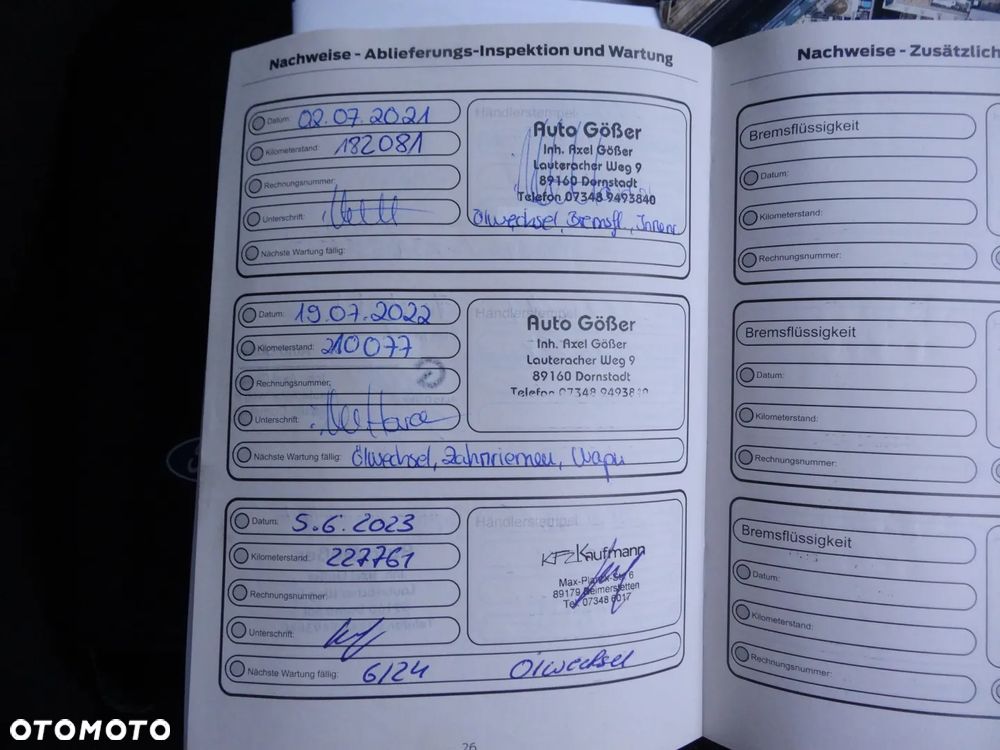 Nachweise - Ablieferungs-Inspektion und Wartung
Datum: 02.07.2021
Kilometerstand: 182081
Rechnungsnummer:
Unterschrift:
Nächste Wartung fällig:
Händlerstempel
Auto Gößer
Inh. Axel Gößer
Lauteracher Weg 9
89160 Dornstadt
Telefon 07348 9493840
Ölwechsel, Bremsfl., Innenr
Datum: 19.07.2022
Kilometerstand: 210077
Rechnungsnummer:
Unterschrift:
Nächste Wartung fällig: Ölwechsel, Zahnriemen, Wapu
Händlerstempel
Auto Gößer
Inh. Axel Gößer
Lauteracher Weg 9
89160 Dornstadt
Telefon 07348 9493840
Datum: 5.6.2023
Kilometerstand: 227761
Rechnungsnummer:
Unterschrift:
Nächste Wartung fällig: 6/24 Ölwechsel
Händlerstempel
KFZ Kaufmann
Max-Planck-Str. 6
89179 Beimerstetten
Tel. 07348 6017
26
Nachweise - Zusätzlich
Bremsflüssigkeit
Datum:
Kilometerstand:
Rechnungsnummer:
Bremsflüssigkeit
Datum:
Kilometerstand:
Rechnungsnummer:
Bremsflüssigkeit
Datum:
Kilometerstand:
Rechnungsnummer:
OTOMOTO